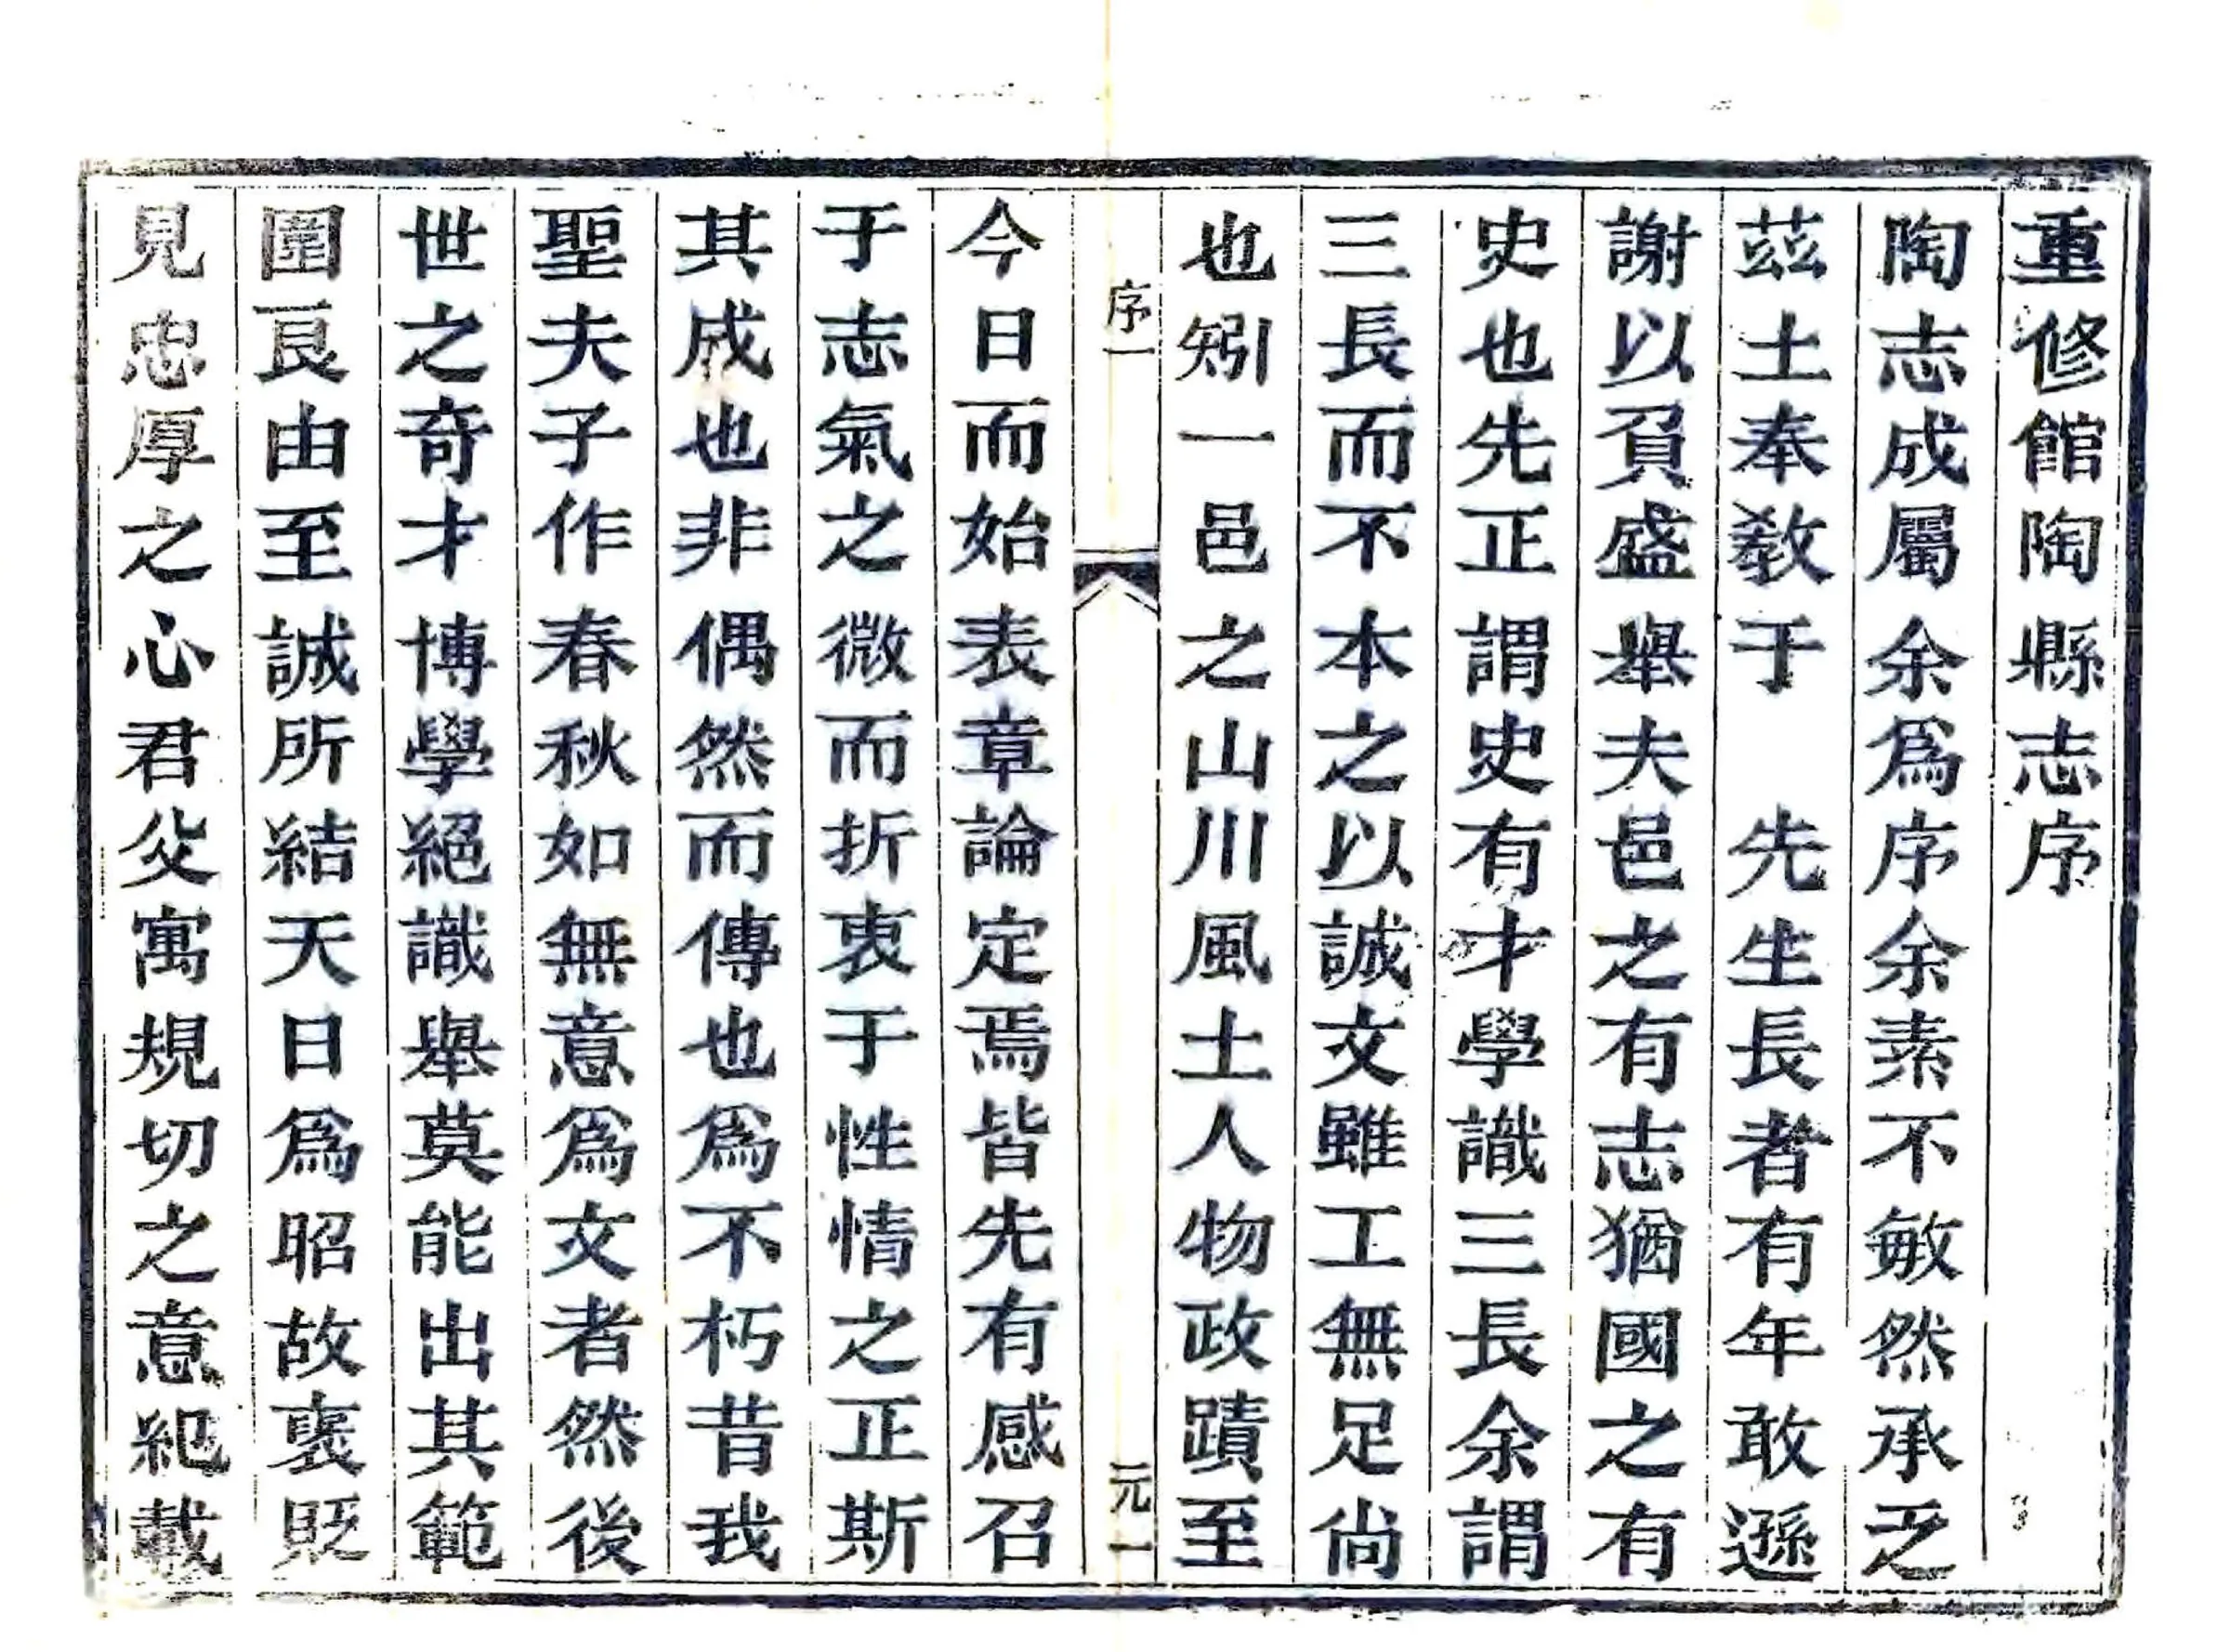 重修館陶縣志序
陶志成屬余爲序余素不敏然承乏
茲土奉教于　先生長者有年敢遜
謝以負盛舉夫邑之有志猶國之有
史也先正謂史有才學識三長余謂
三長而不本之以誠文雖工無足尚
也矧一邑之山川風土人物政蹟至
序一
元一
今日而始表章論定焉皆先有感召
于志氣之微而折衷于性情之正斯
其成也非偶然而傳也爲不朽昔我
聖夫子作春秋如無意爲文者然後
世之奇才博學絕識舉莫能出其範
圍良由至誠所結天日爲昭故褒貶
見忠厚之心君父寓規切之意紀載